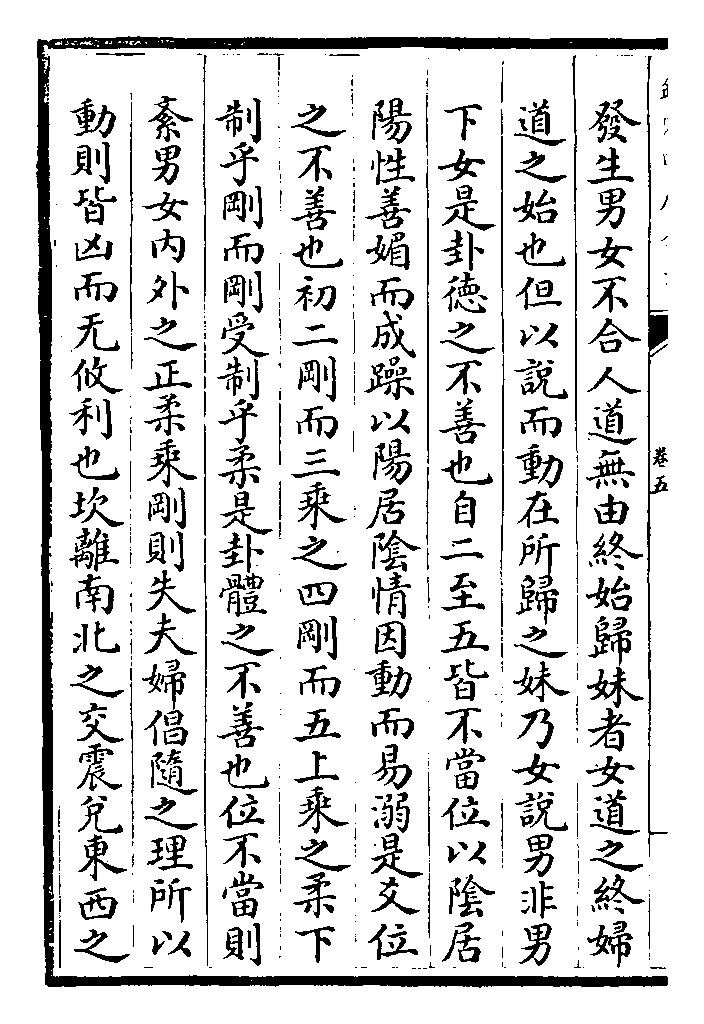 卷五
發生男女不合人道無由終始歸妹者女道之終婦
道之始也但以說而動在所歸之妹乃女說男非男
下女是卦德之不善也自二至五皆不當位以陰居
陽性善媚而成躁以陽居陰情因動而易溺是爻位
之不善也初二剛而三乘之四剛而五上乘之柔下
制乎剛而剛受制乎柔是卦體之不善也位不當則
紊男女內外之正柔乘剛則失夫婦倡隨之理所以
動則皆凶而无攸利也坎離南北之交震兌東西之